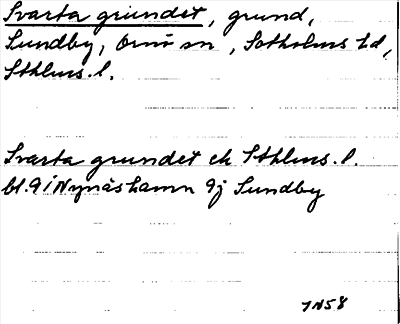 Svarta grundet, grund,
Sundby, Ornö sn, Sotholms hd,
Sthlms. l.
Svarta grundet ek Sthlms. l.
bl. 9 i Nynäshamn 9j Sundby
JN58